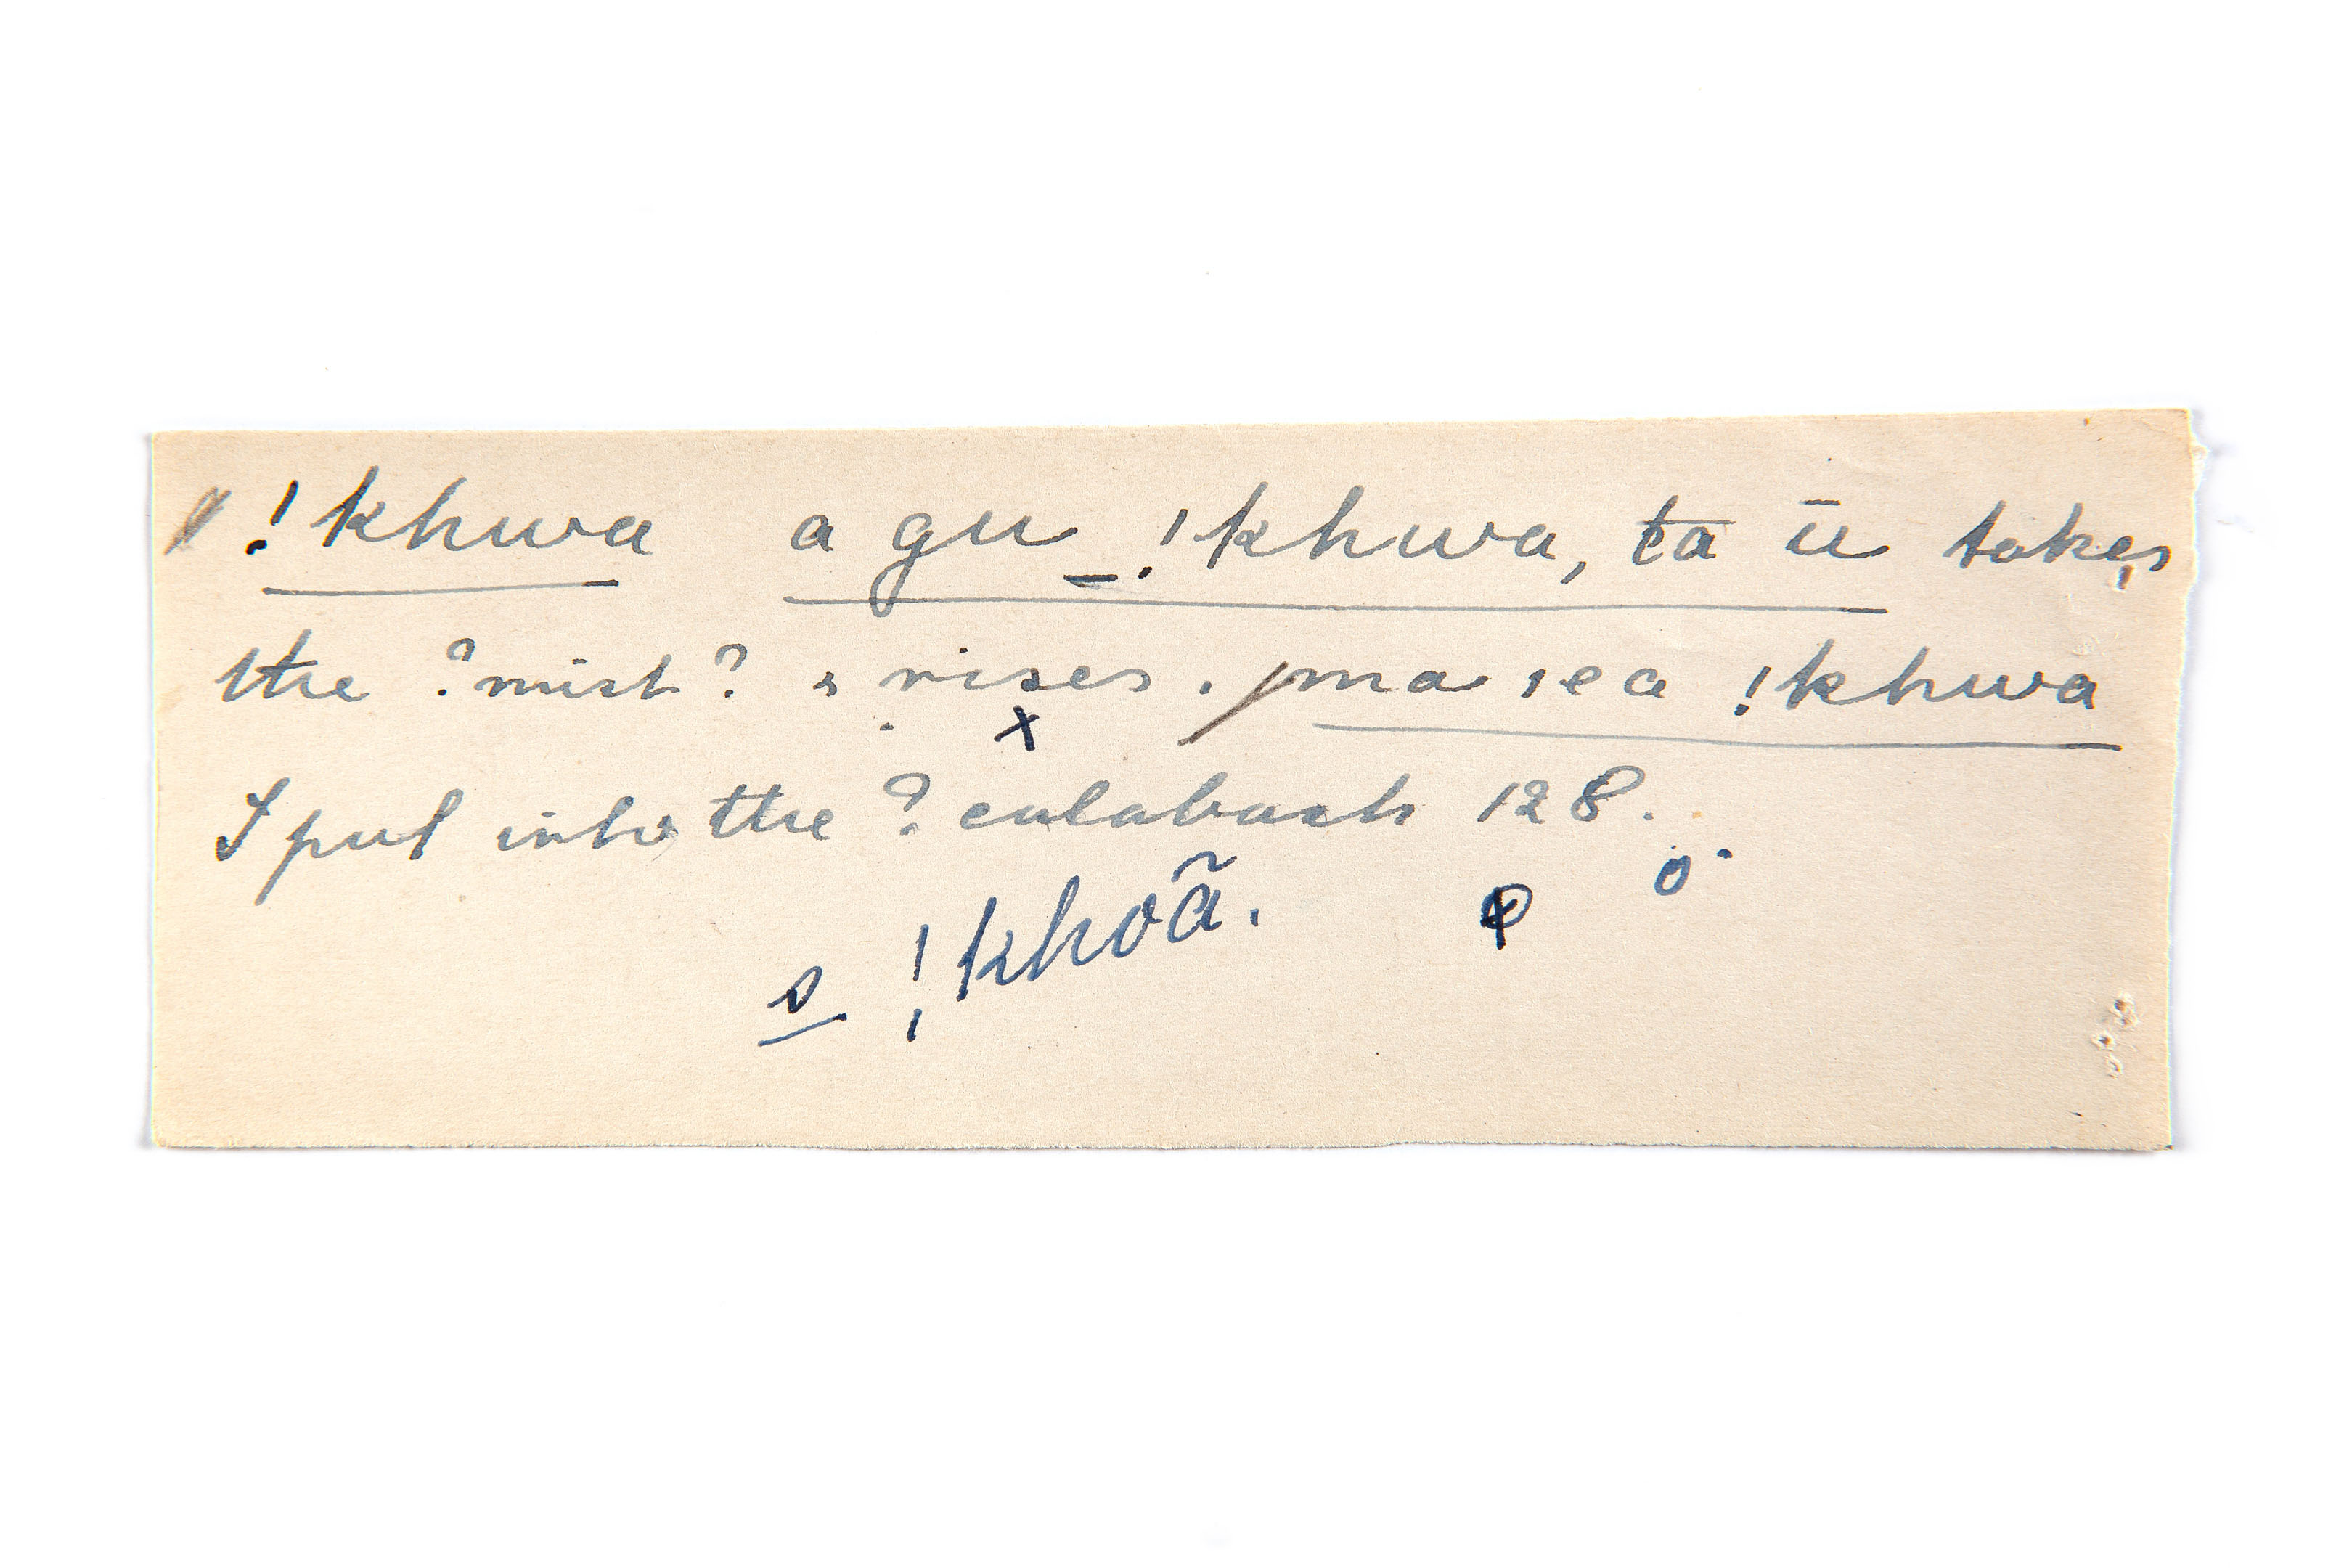 !khwa a gu _!khwa, ta ū takes
the ?mist? & rises. /ma sea !khwa
x
I put into the ? calabash 128.
s !khoã. o.